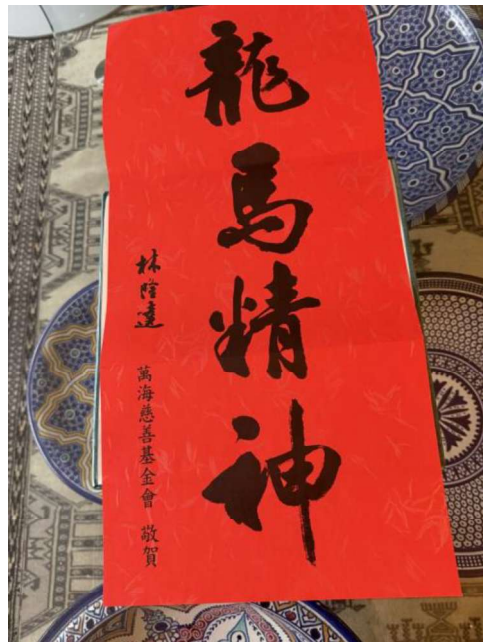 龍馬精神
林隆達
萬海慈善基金會 敬賀